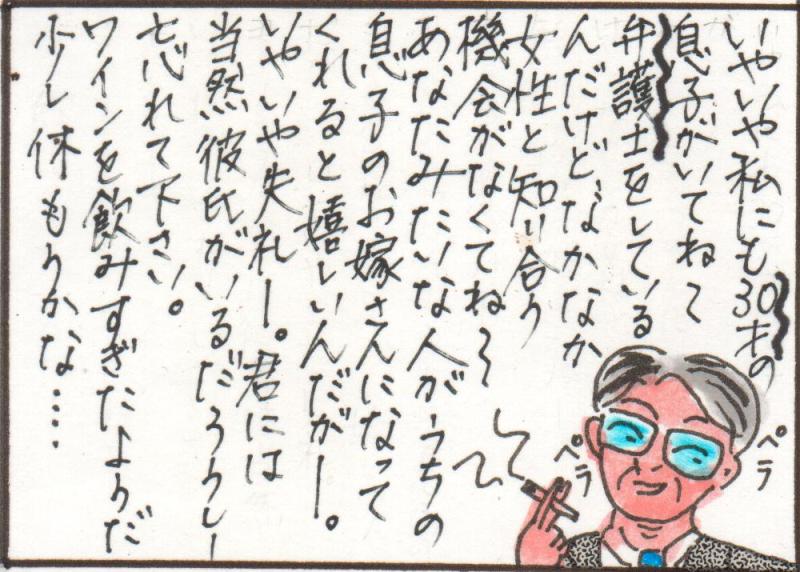 いやいや私にも30才の
息子がいてねぇ
弁護士をしている
んだけど、なかなか
女性と知り合う
機会がなくてね〜
あなたみたいな人がうちの
息子のお嫁さんになって
くれると嬉しいんだがー。
いやいや失礼ー。君には
当然彼氏がいるだろうしー
忘れて下さい。
ワインを飲みすぎたようだ
少し休もうかな‥‥
ペラ
ペラ